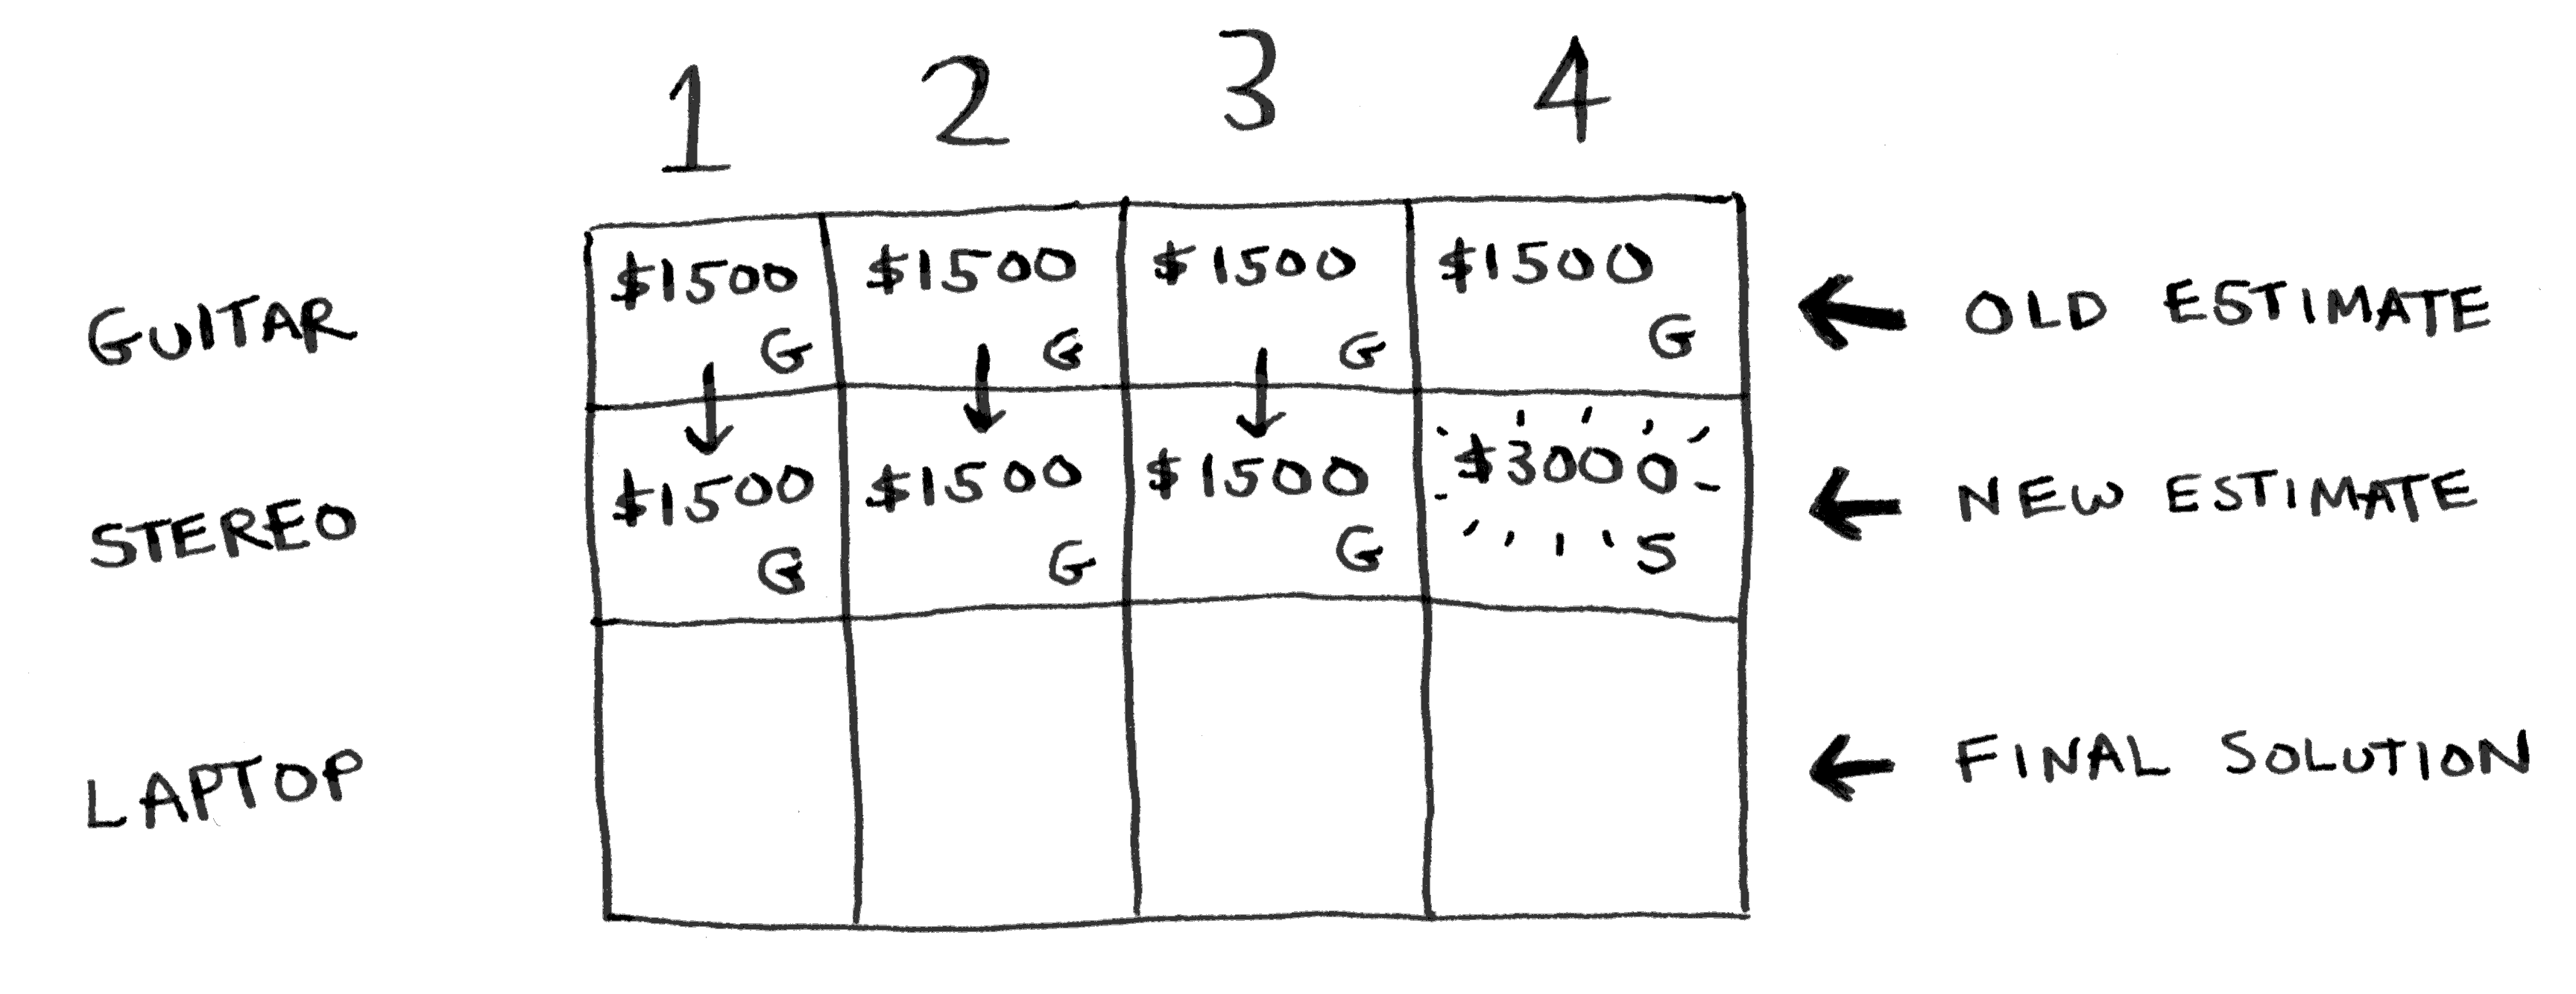 1 2 3 4
GUITAR $1500 G $1500 G $1500 G $1500 G OLD ESTIMATE
STEREO $1500 G $1500 G $1500 G $3000 S NEW ESTIMATE
LAPTOP FINAL SOLUTION